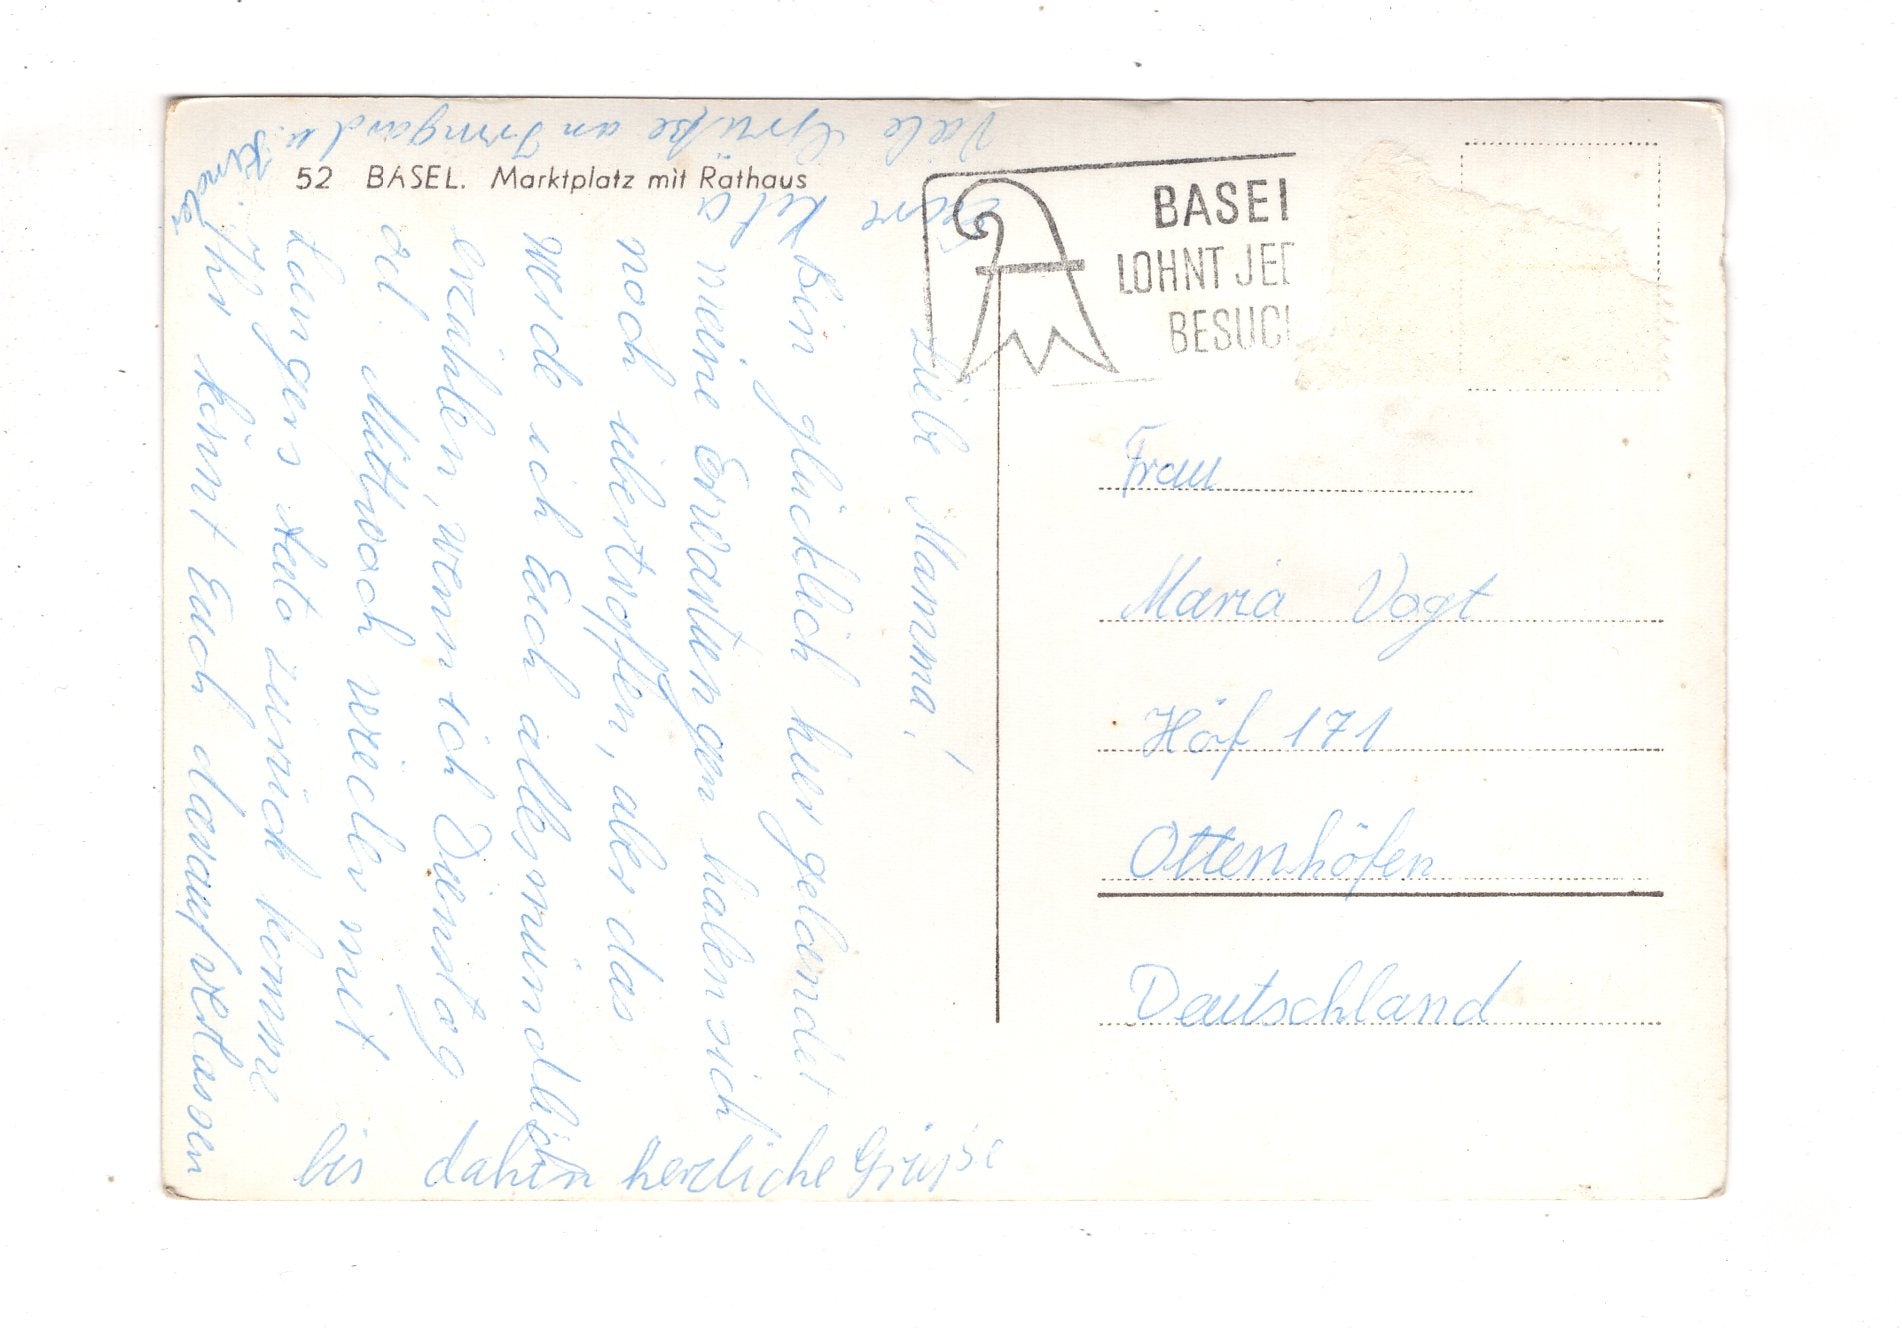 52 BASEL. Marktplatz mit Rathaus
BASEL
LOHNT JED
BESUCH
Liebe Mamma!
Bin glücklich hier gelandet
meine Erwartungen haben sich
noch übertroffen, aber das
werde ich Euch alles mündlich
erzählen, wenn ich Dienstag
od. Mittwoch wieder mit
Langers Auto zurück komme
Ihr könnt Euch darauf verlassen
bis dahin herzliche Grüsse
Eure
Viele Grüße an Irmgard u.
Kinder
Frau
Maria Vogt
Höf 171
Ottenhöfen
Deutschland